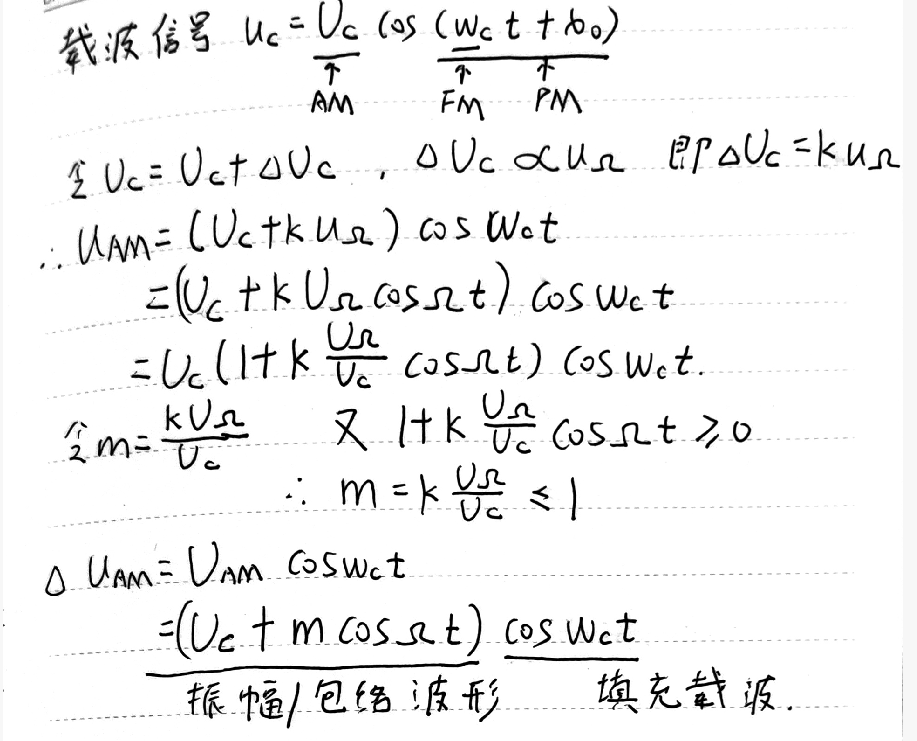 载波信号 u_c = U_c cos (w_c t + φ_0)
↑ ↑ ↑
AM FM PM
令 U_c = U_c + △U_c , △U_c ∝ u_Ω 即△U_c = k u_Ω
∴ u_AM = (U_c + k u_Ω) cos w_c t
= (U_c + k U_Ω cos Ω t) cos w_c t
= U_c (1 + k U_Ω/U_c cos Ω t) cos w_c t.
令 m = kU_Ω/U_c 又 1 + k U_Ω/U_c cos Ω t ≥ 0
∴ m = k U_Ω/U_c ≤ 1
△ u_AM = U_AM cos w_c t
= (U_c + m cos Ω t) cos w_c t
振幅/包络波形 填充载波.